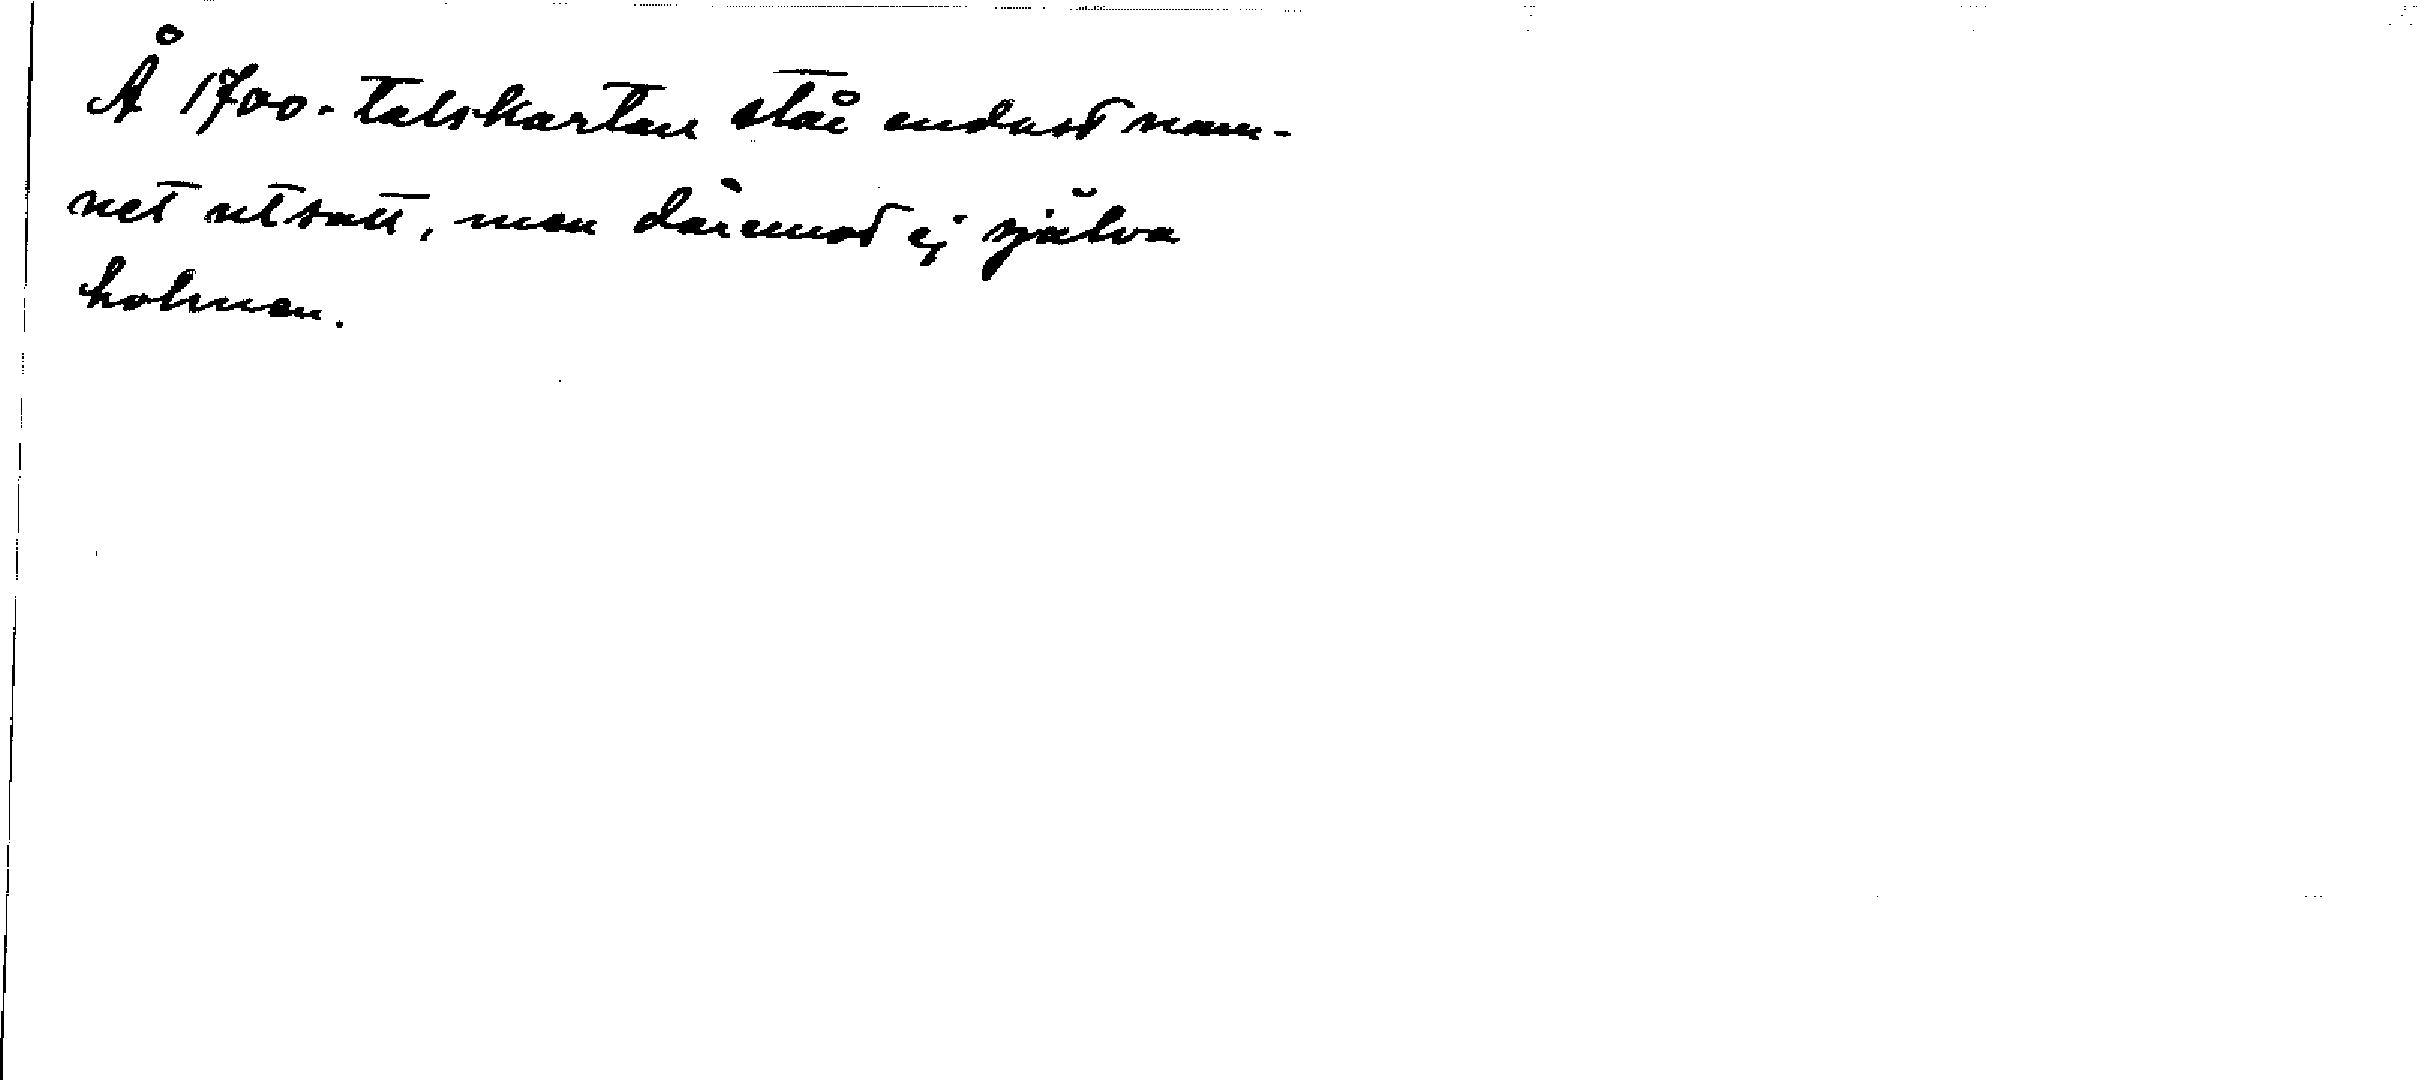 Å 1700-talskartan står endast nam-
net utsatt, men däremot ej själva
holmen.